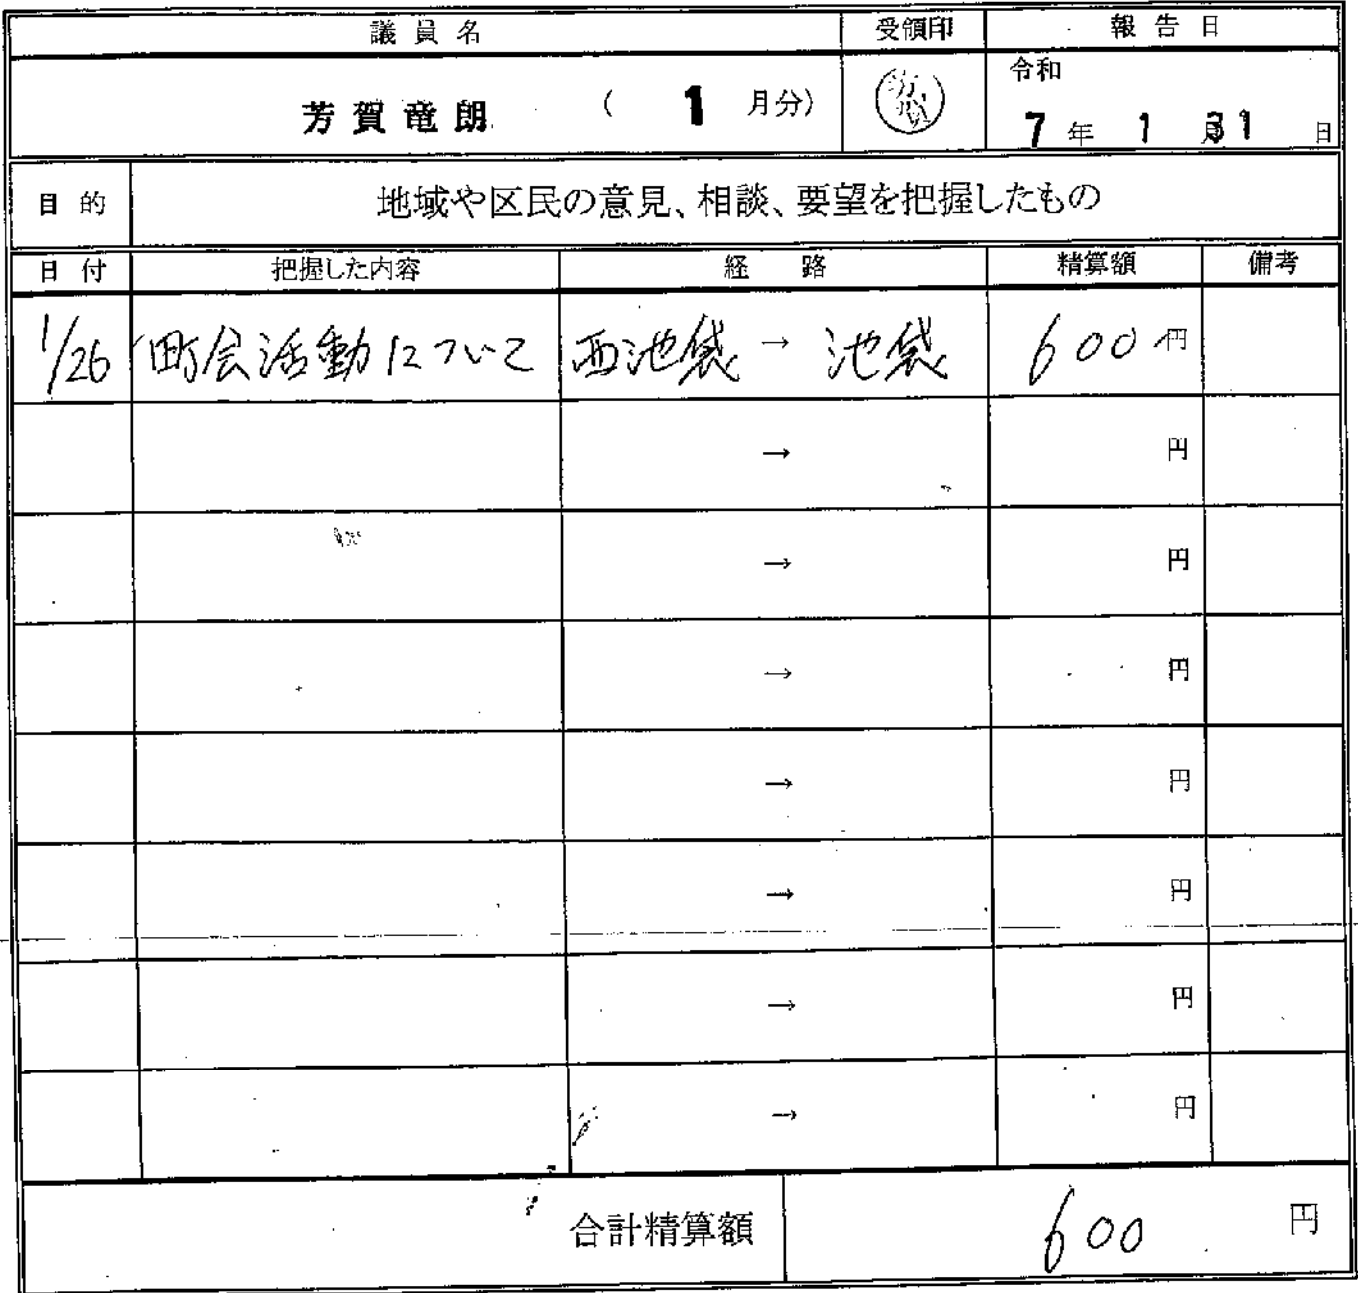 議員名 受領印 報告日
芳賀竜朗 ( 1 月分) 芳賀 令和
7 年 1 月 31 日
目的 地域や区民の意見、相談、要望を把握したもの
日付 把握した内容 経路 精算額 備考
1/26 町会活動について 西池袋 → 池袋 600 円
→ 円
→ 円
→ 円
→ 円
→ 円
→ 円
→ 円
合計精算額 600 円